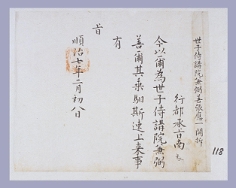 世子侍講院兼弼善張應一 開拆
行都承旨
今以爾為世子侍講院兼弼
善爾其乘馹斯速上來事
有
旨
順治七年二月初八日
118